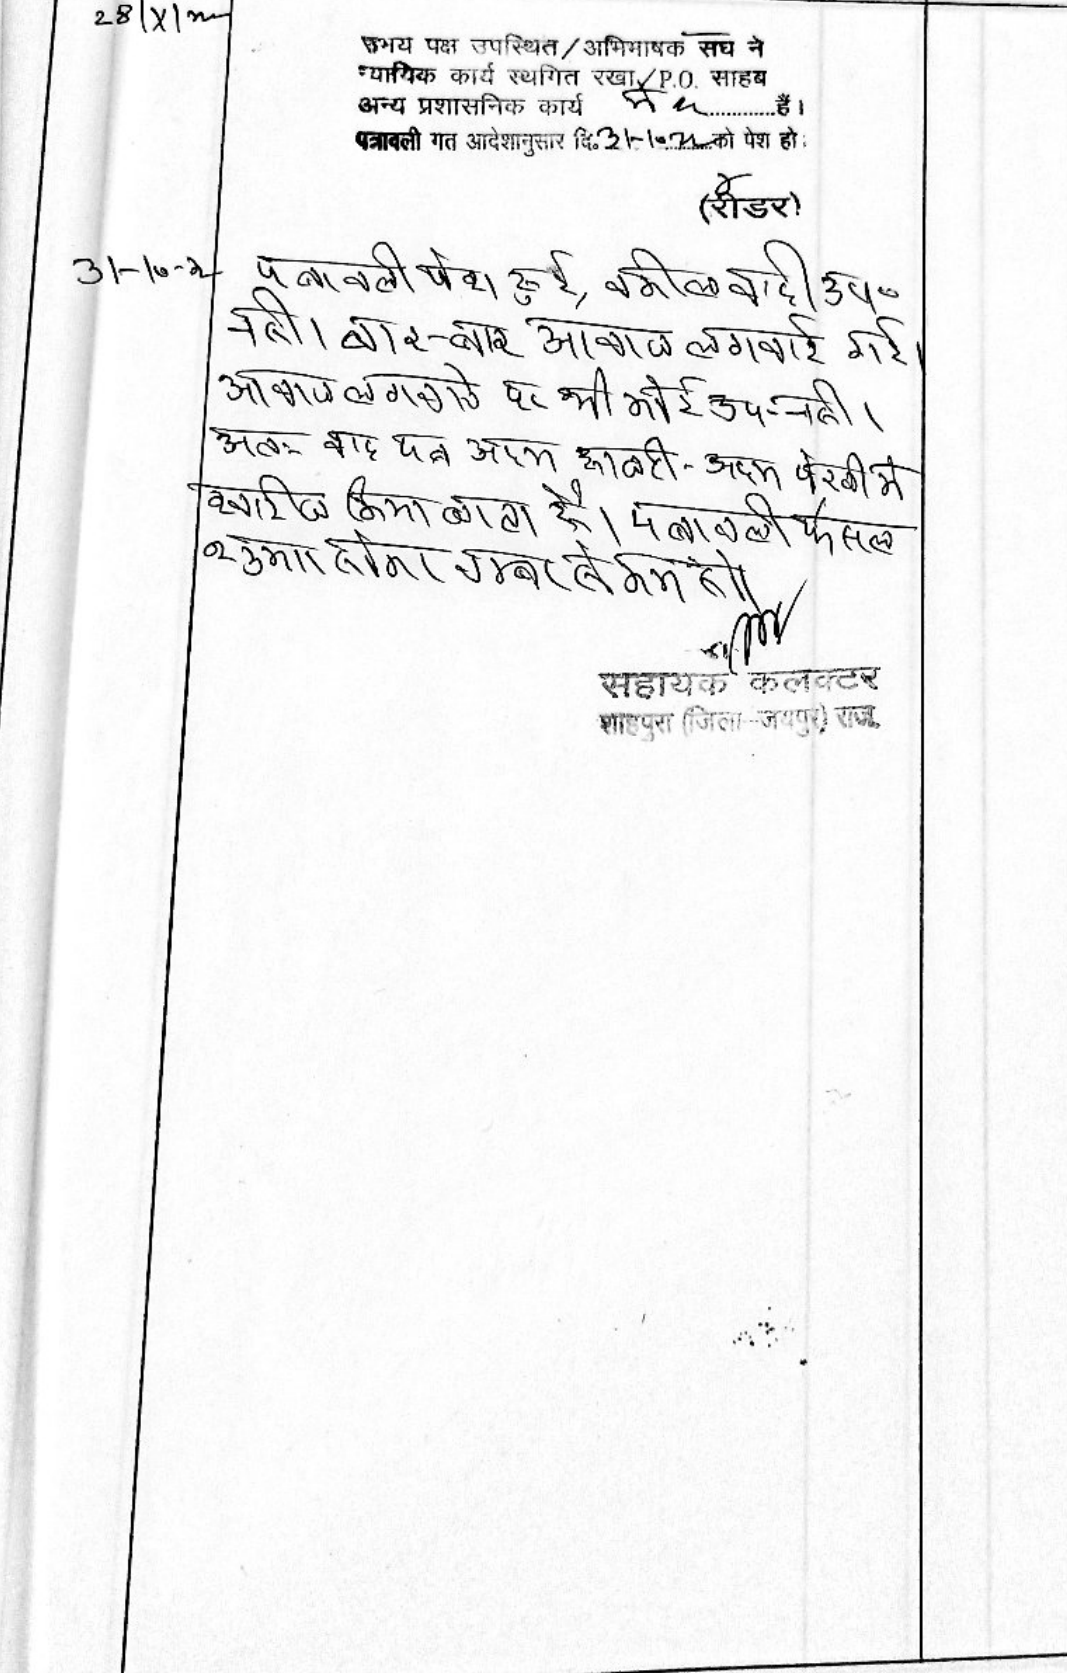 28/X/
उभय पक्ष उपस्थित/अभिभाषक संघ ने
न्यायिक कार्य स्थगित रखा/P.O. साहब
अन्य प्रशासनिक कार्य में ............ हैं।
पत्रावली गत आदेशानुसार दि. 31-10- को पेश हो।
(रीडर)
31-10- पत्रावली पेश हुई, वकील वादी उप०
नहीं। बार-बार आवाज लगवाई गई।
आवाज लगवाने पर भी कोई उप. नहीं।
अतः वाद पत्र अदम हाजरी-अदम पैरवी में
खारीज किया जाता है। पत्रावली फैसल
शुमार होकर नम्बर से कम हो।
सहायक कलक्टर
शाहपुरा (जिला-जयपुर) राज.